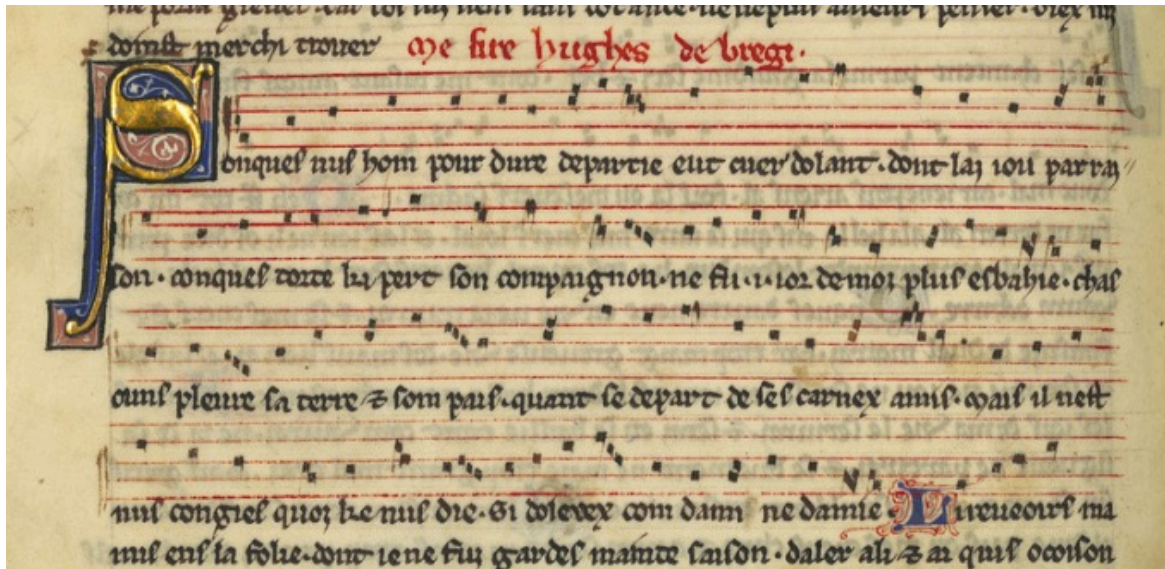 domst merchi trouer Me sire hughes de bregi.
Sonques nus hom pour dure departie eut cuer dolant. dont lai iou par rai
son. conques torte ki pert son compaignon. ne fu .i. ior de moi plus esbahie. chas
cuns pleure sa terre ⁊ som pais. quant se depart de ses carnex amis. Mais il nest
nus congies quoi ke nus die. si dolerex com dami ne damie. Li reueoirs ma
mis ens la folie. dont ie ne fui gardes mainte saison. daler a li ⁊ ai quis ocoison